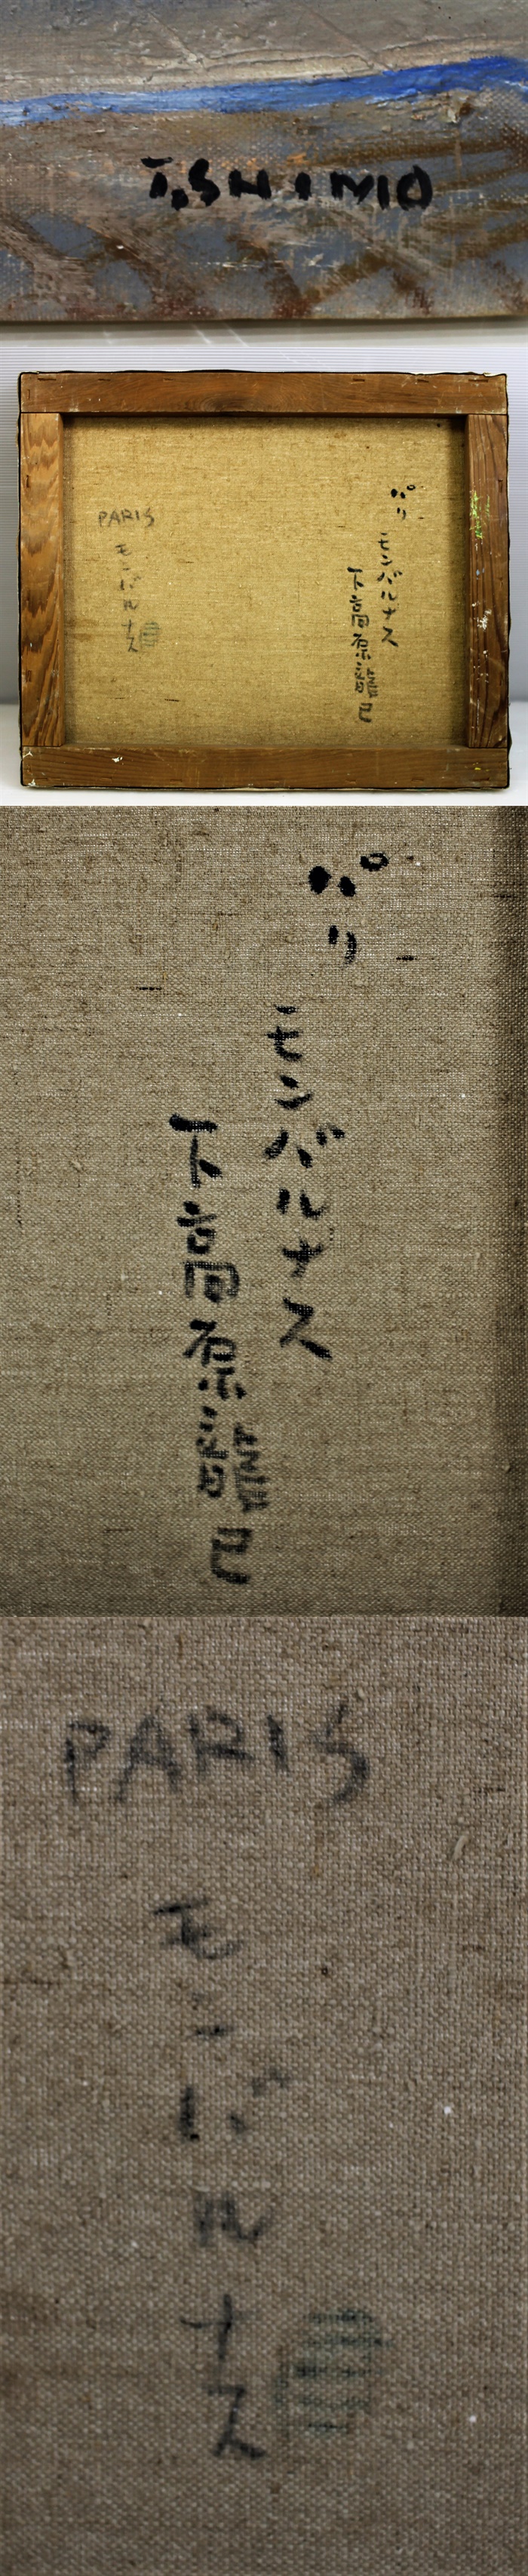 T.SHIMO
パリ
モンバルナス
下高原龍巳
PARIS
モンバルナス
パリ
モンバルナス
下高原龍巳
PARIS
モンバルナス